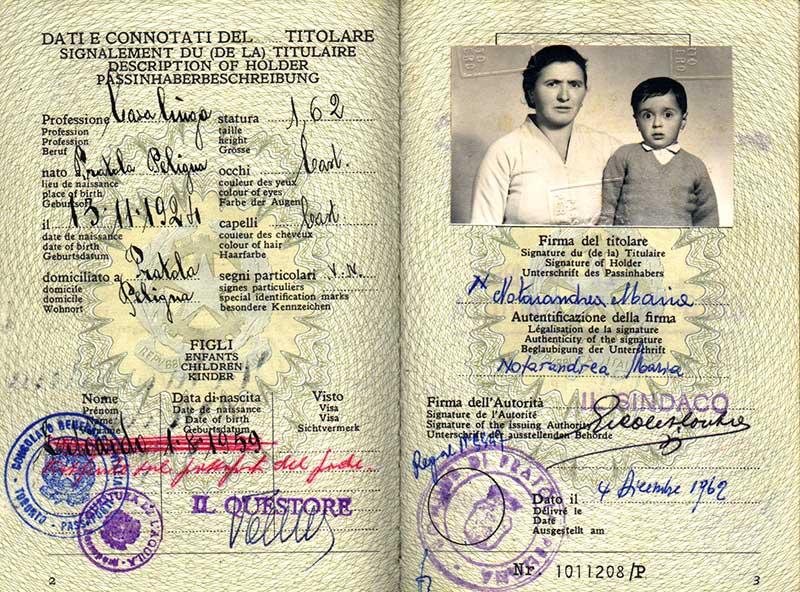 DATI E CONNOTATI DEL TITOLARE
SIGNALEMENT DU (DE LA) TITULAIRE
DESCRIPTION OF HOLDER
PASSINHABERBESCHREIBUNG
Professione Casalinga statura 1,62
Profession taille
Profession height
Beruf Grösse
nato Pratola Peligna occhi Cast.
lieu de naissance couleur des yeux
place of birth colour of eyes
Geburtsort Farbe der Augen
il 13-11-1924 capelli Cast
date de naissance couleur des cheveux
date of birth colour of hair
Geburtsdatum Haarfarbe
domiciliato a Pratola segni particolari N.N.
domicilié Peligna signes particuliers
domicile special identification marks
Wohnort besondere Kennzeichen
FIGLI
ENFANTS
CHILDREN
KINDER
Nome Data di nascita Visto
Prénom Date de naissance Visa
Name Date of birth Visa
Geburtsdatum Sichtvermerk
1959
del padre
IL QUESTORE
2
Firma del titolare
Signature du (de la) Titulaire
Signature of Holder
Unterschrift des Passinhabers
Notarandrea Maria
Autentificazione della firma
Légalisation de la signature
Authenticity of the signature
Beglaubigung der Unterschrift
Notarandrea Maria
Firma dell'Autorità IL SINDACO
Signature de l'Autorité
Signature of the issuing Authority
Unterschrift der ausstellenden Behörde
Dato il 4 Dicembre 1962
Délivré le
Date
Ausgestellt am
Nr. 1011208/P
3